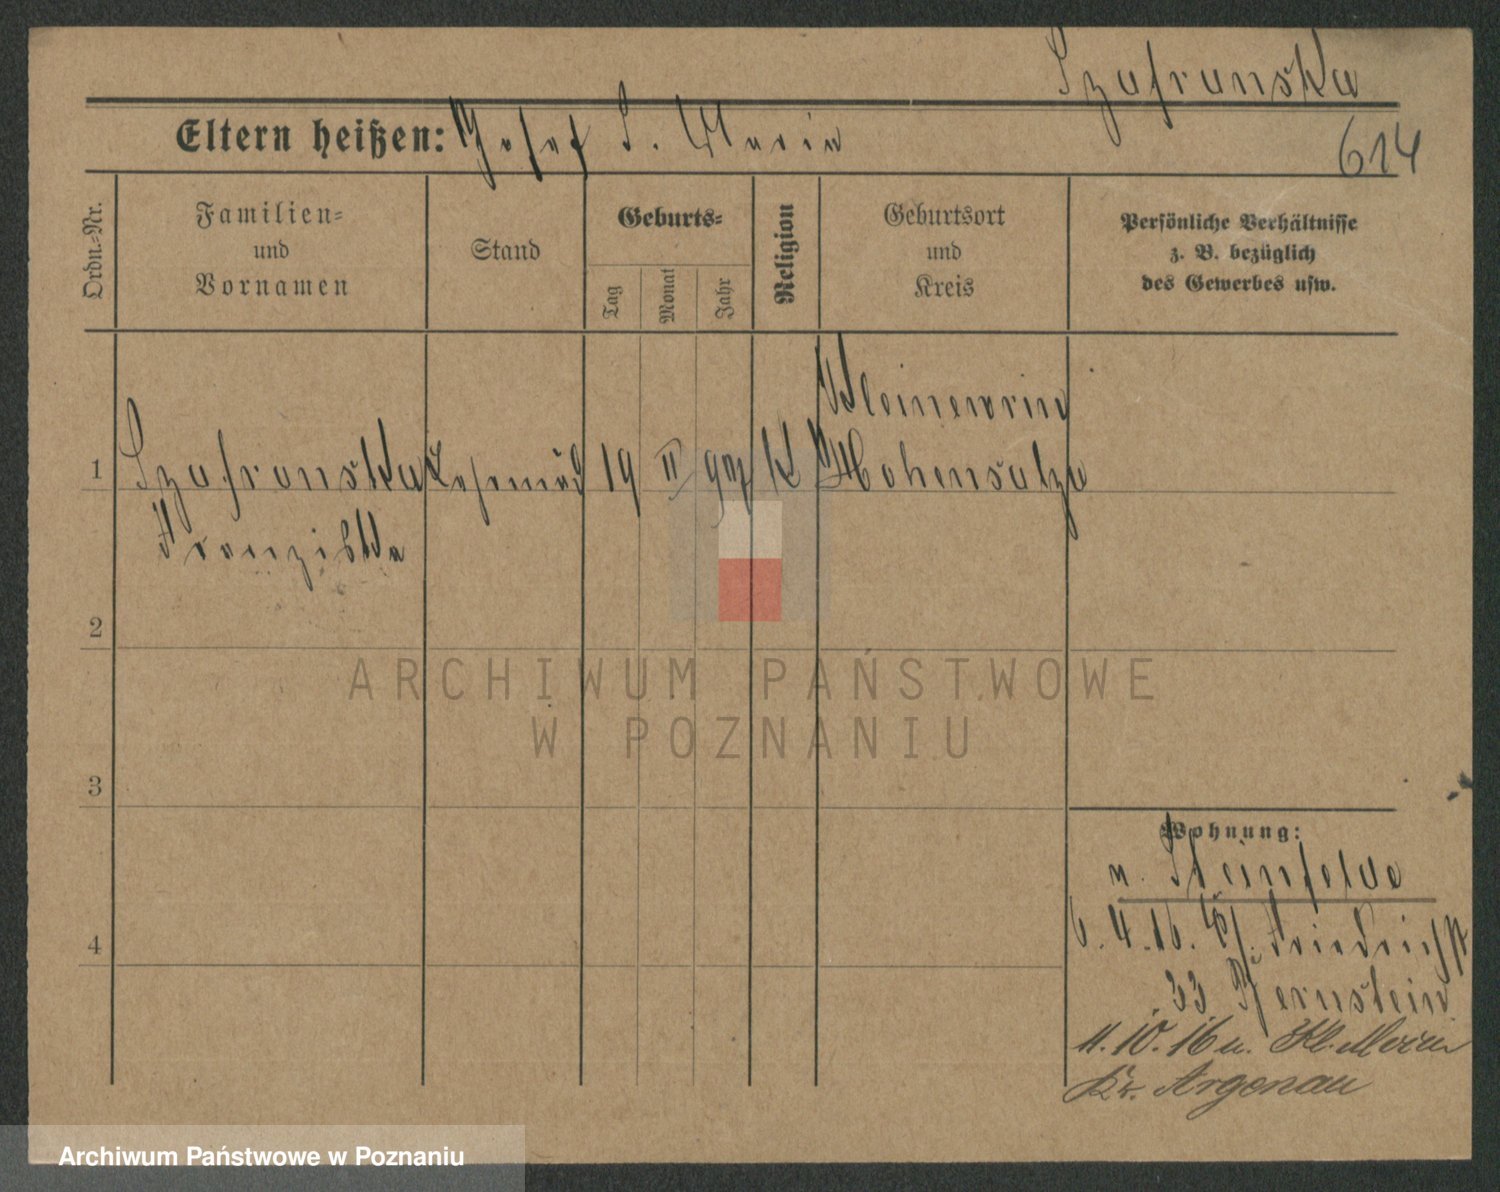 Szafranska
Eltern heißen: Josef S. Maria
614
Ordn.-Nr.
Familien-
und
Vornamen
Stand
Geburts-
Tag
Monat
Jahr
Religion
Geburtsort
und
Kreis
Persönliche Verhältnisse
z. B. bezüglich
des Gewerbes usw.
1
Szafranska
19 II
K
Hohensalza
Franziska
2
ARCHIWUM PAŃSTWOWE
W POZNANIU
3
Wohnung:
n. Steinfelde
6.4.16. Friedrichst
33 Bernstein
4
11.10.16 n. Kl.
Kr. Argenau
Archiwum Państwowe w Poznaniu